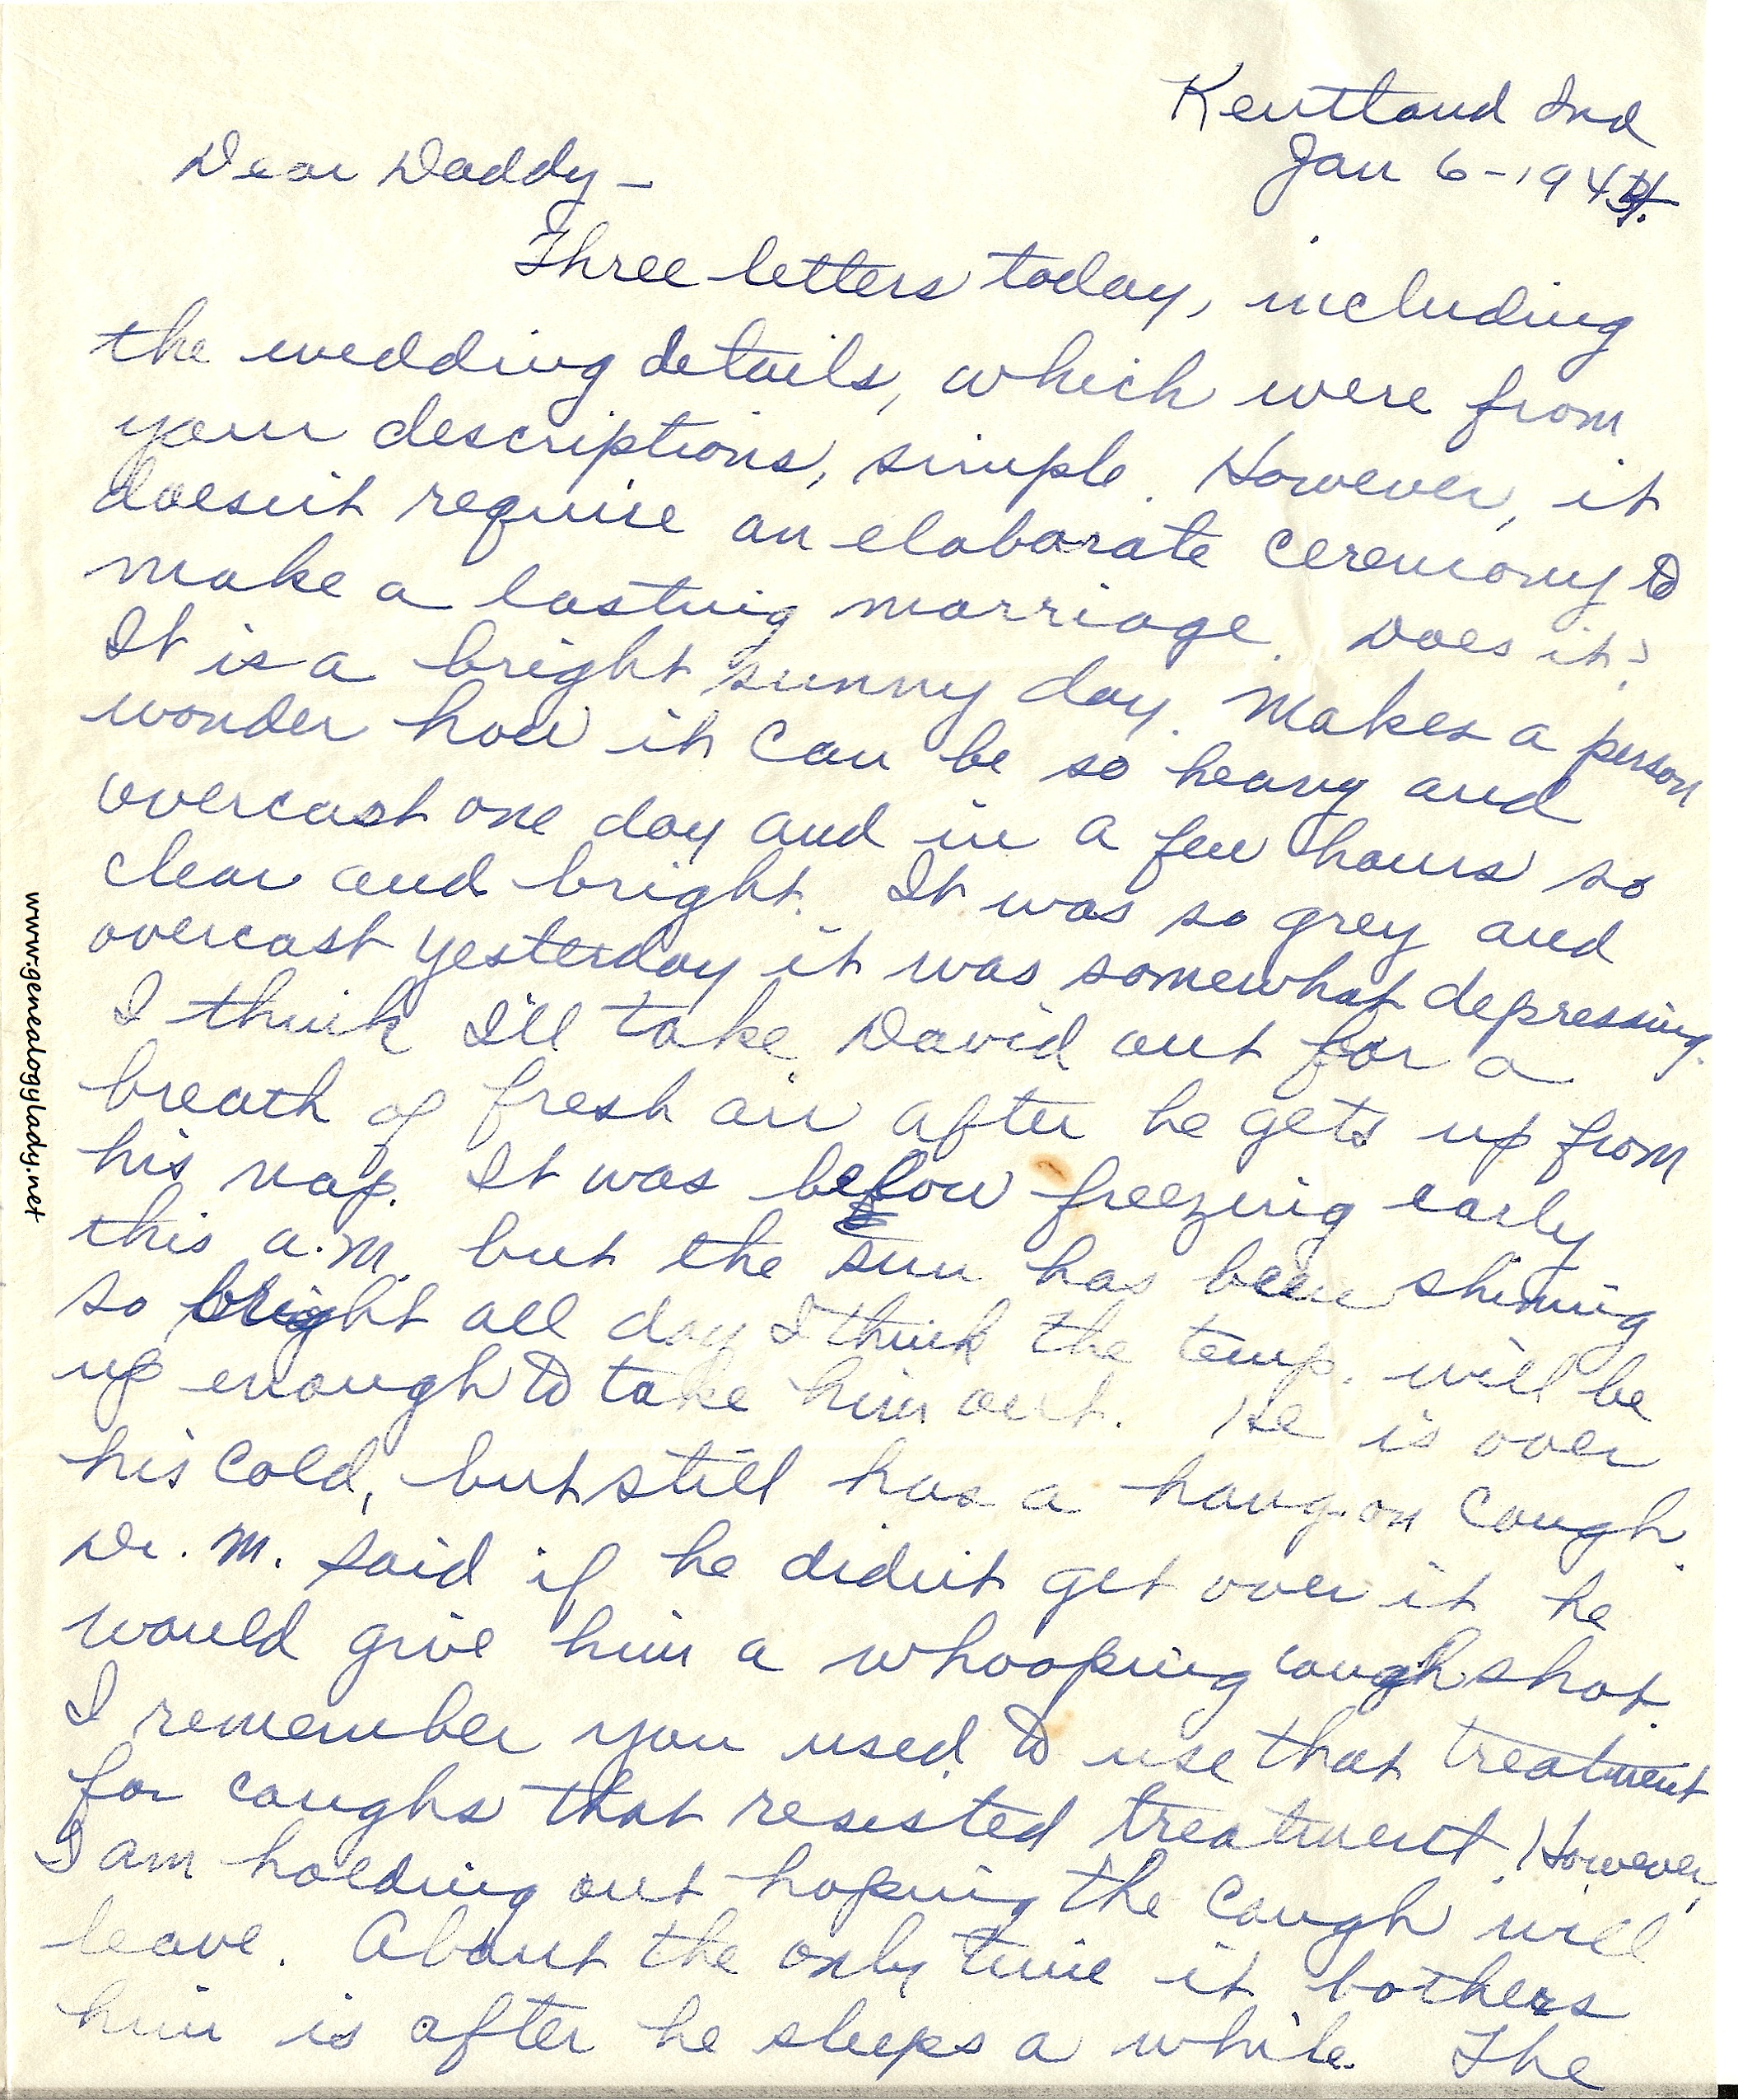 Kentland Ind
Jan 6-1944.
Dear Daddy-
Three letters today, including
the wedding details, which were from
your descriptions, simple. However, it
doesn't require an elaborate ceremony to
make a lasting marriage. Does it?
It is a bright sunny day. Makes a person
wonder how it can be so heavy and
overcast one day and in a few hours so
clear and bright. It was so grey and
overcast yesterday it was somewhat depressing.
I think I'll take David out for a
breath of fresh air after he gets up from
his nap. It was below freezing early
this a.m. but the sun has been shining
so bright all day I think the temp. will be
up enough to take him out. He is over
his cold, but still has a hang-on cough.
Dr. M. said if he didn't get over it he
would give him a whooping cough shot.
I remember you used to use that treatment
for coughs that resisted treatment. However,
I am holding out hoping the cough will
leave. About the only time it bothers
him is after he sleeps a while. The
www.genealogylady.net